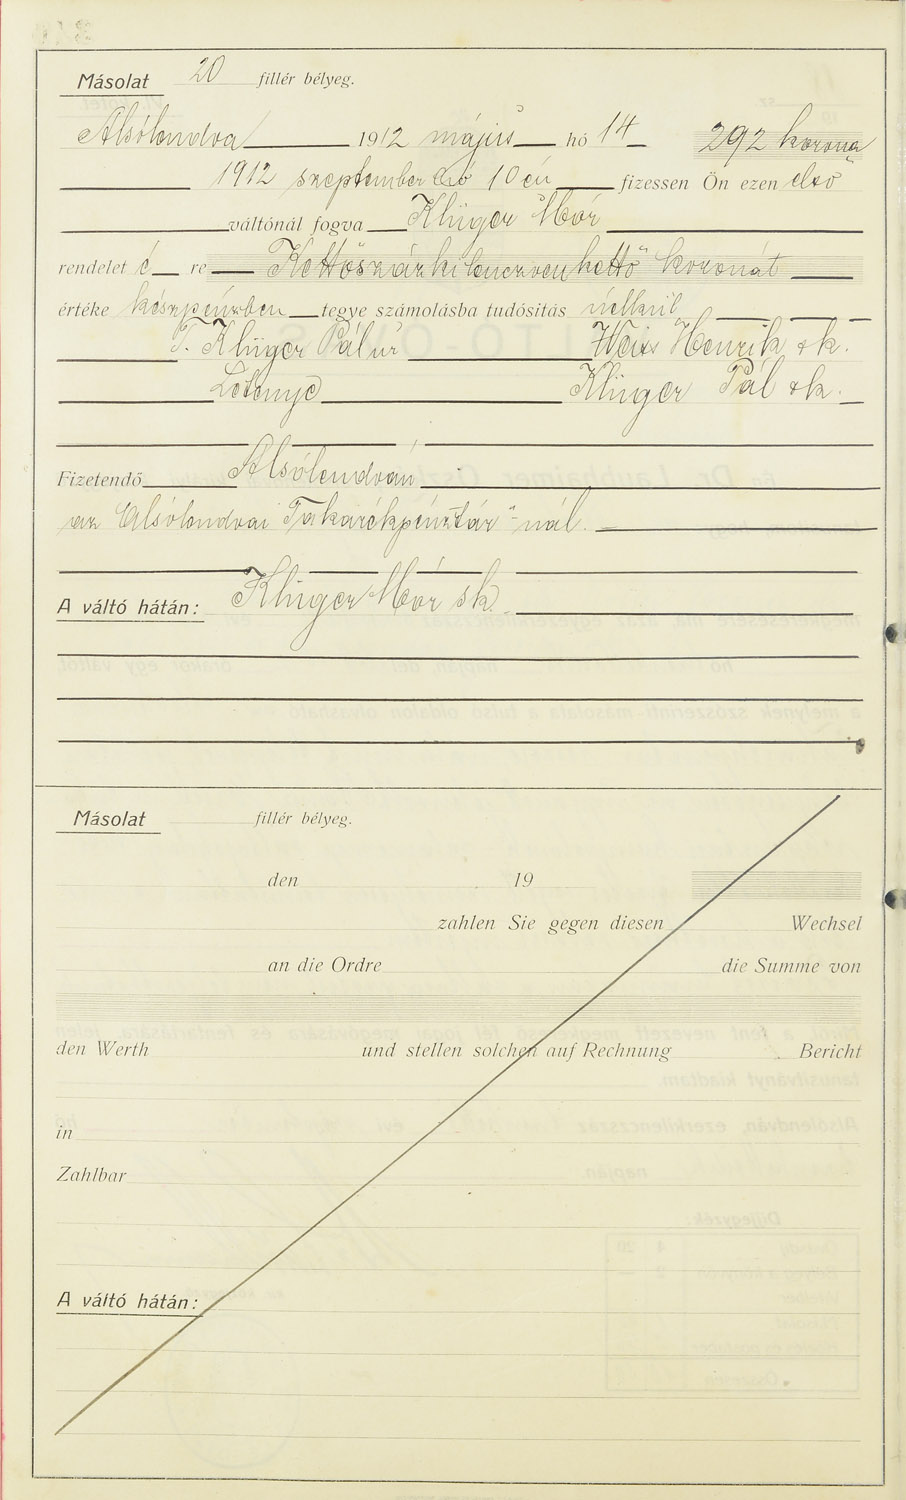 Másolat 20 fillér bélyeg.
Alsólendva 1912 május hó 14 292 korona
1912 szeptember hó 10 én fizessen Ön ezen első
váltónál fogva Klüger Mór
rendelet é re Kettőszázkilenczvenkettő koronát
értéke készpénzben tegye számolásba tudósitás nélkül
T. Klüger Pál úr Weiss Henrik sk.
Letenye Klüger Pál sk.
Fizetendő Alsólendván
az Alsólendvai Takarékpénztár"-nál.
A váltó hátán: Klüger Mór sk.
Másolat fillér bélyeg.
den 19
zahlen Sie gegen diesen Wechsel
an die Ordre die Summe von
den Werth und stellen solchen auf Rechnung Bericht
in
Zahlbar
A váltó hátán: